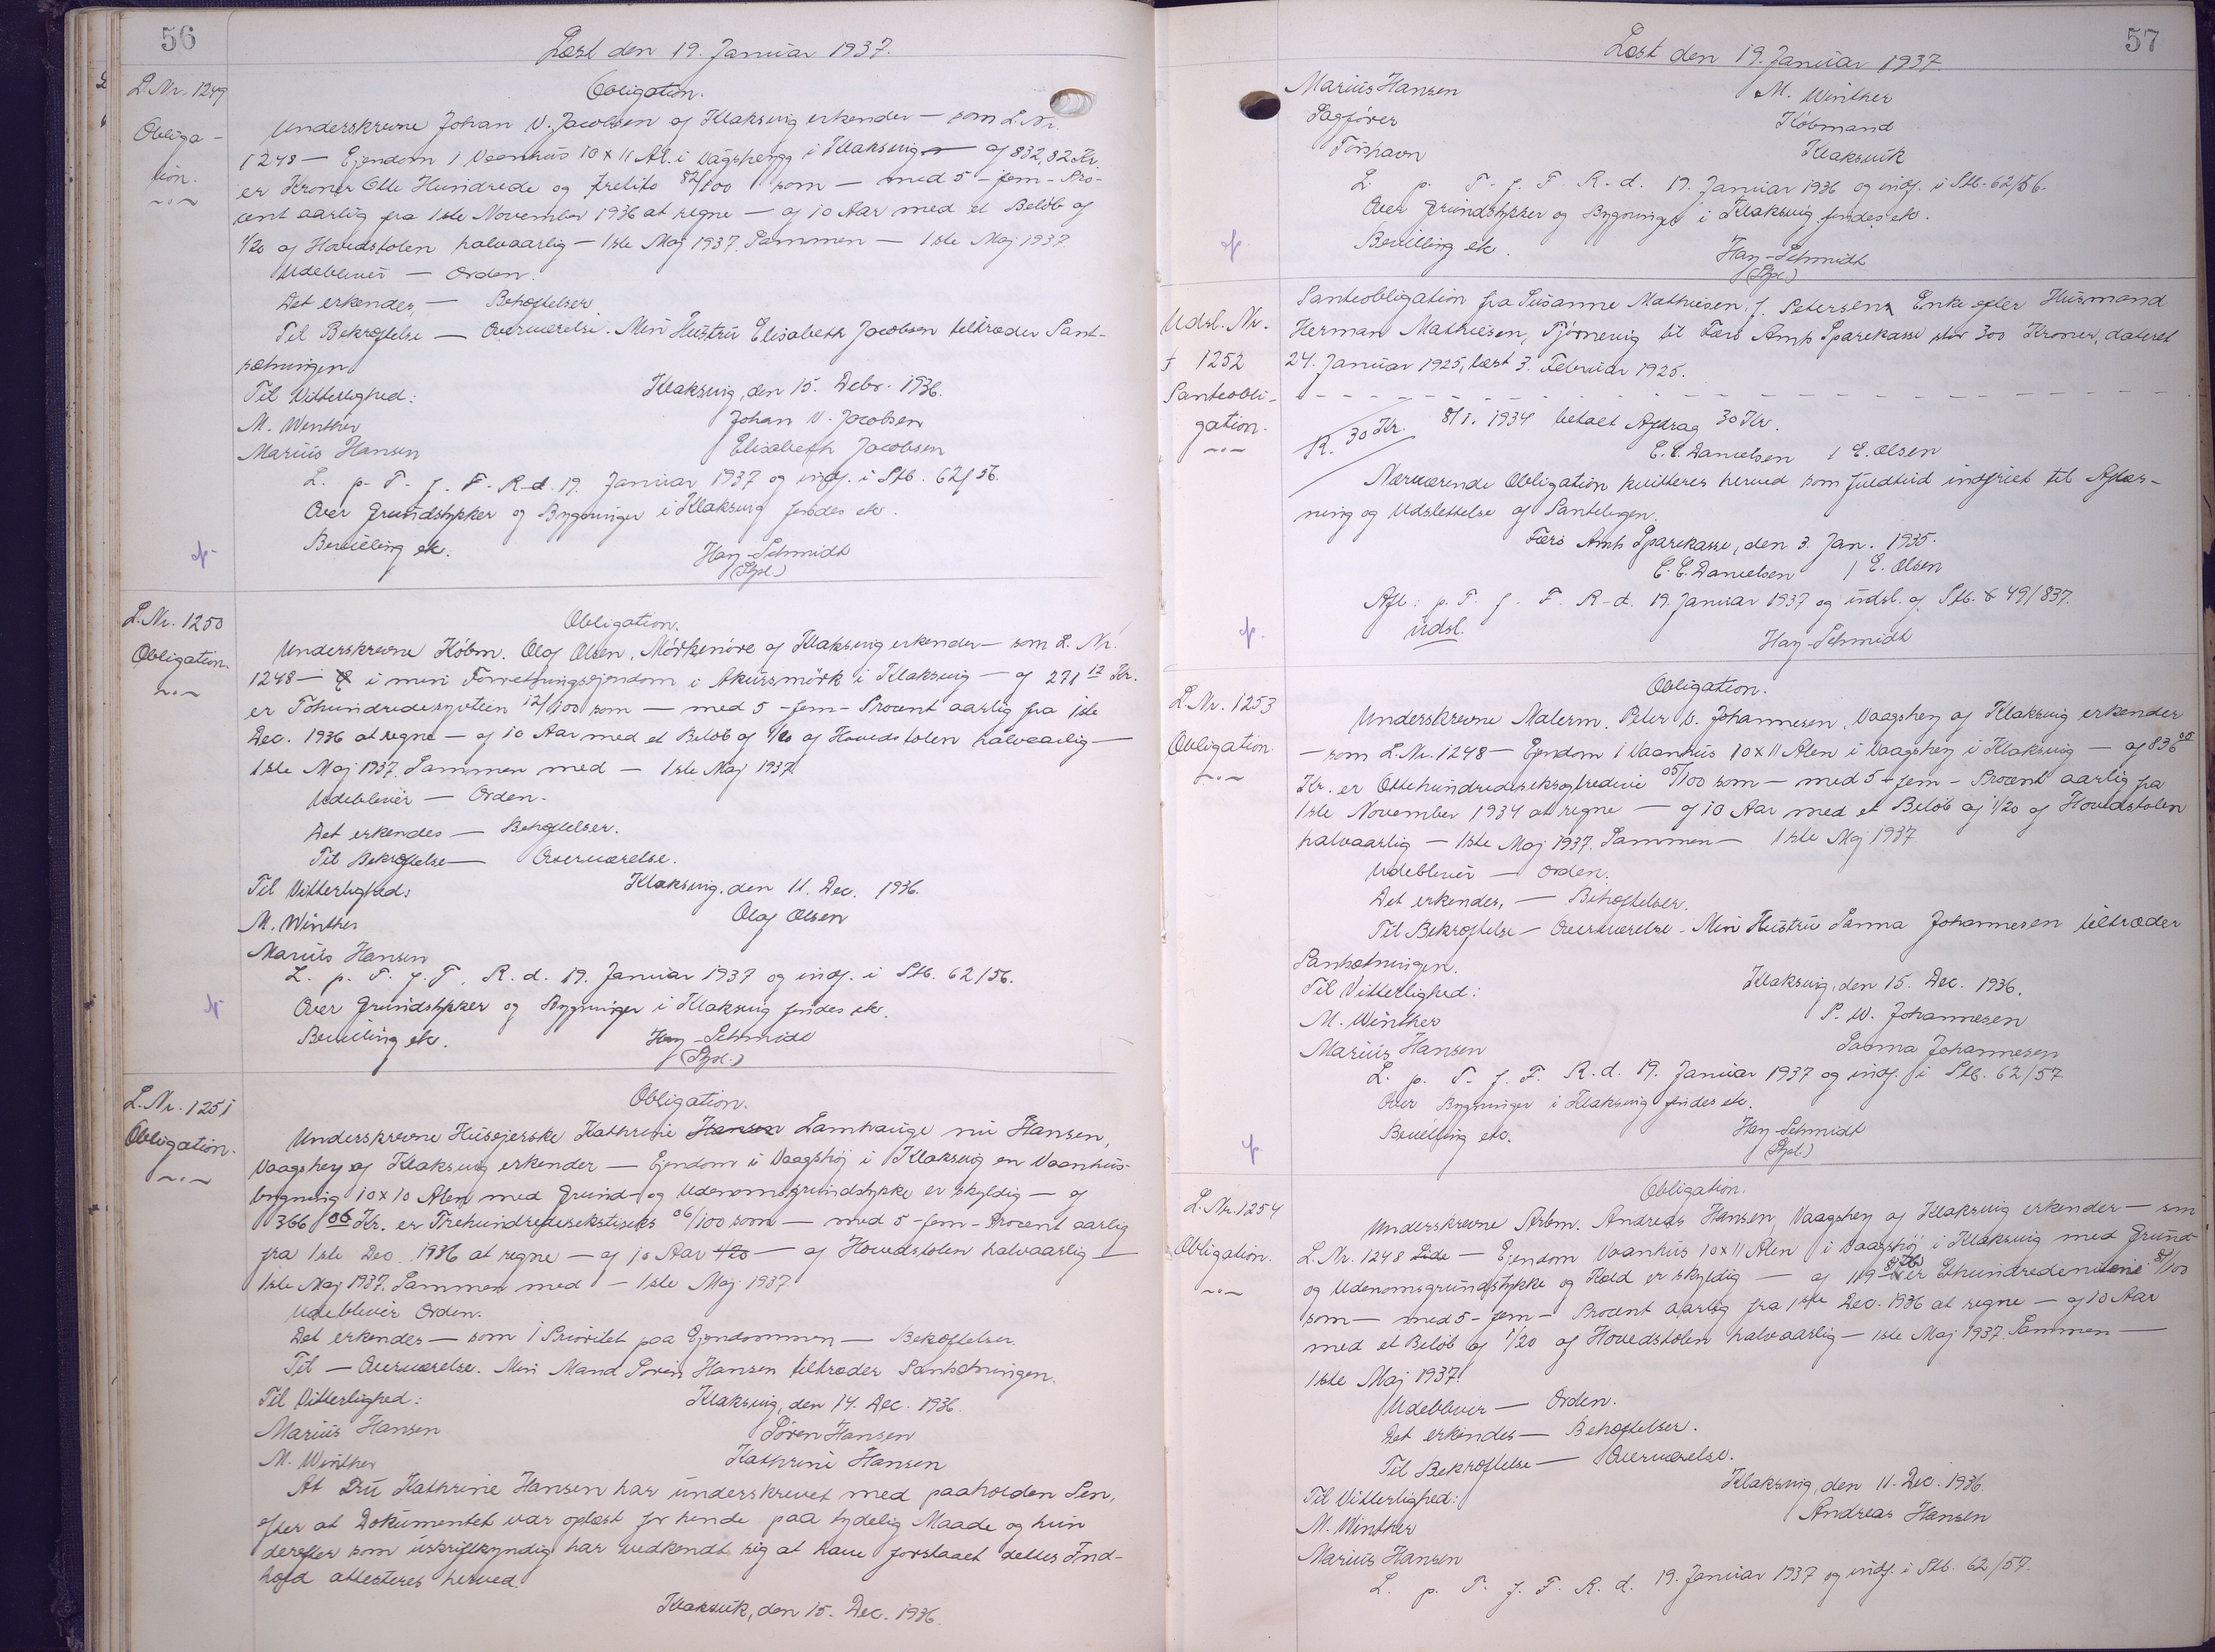 56
Læst den 19. Januar 1937.
L.Nr. 1249
Obliga-
tion.
Obligation.
Underskrevne Johan V. Jacobsen af Klaksvig erkender — som L.Nr.
1248 — Ejendom 1 Vaanhus 10 x 11 Al. i Vágsheygg i Klaksvig — af 832,82 Kr.
er Kroner Otte Hundrede og Tretito 82/100 som — med 5 - fem - Pro-
cent aarlig fra 1ste November 1936 at regne — af 10 Aar med et Beløb af
1/20 af Hovedstolen halvaarlig — 1ste Maj 1937. Sammen — 1ste Maj 1937.
Udebliver — Orden.
Det erkendes, — Behæftelser.
Til Bekræftelse — Overværelse. Min Hustru Elisabeth Jacobsen tiltræder Pant-
sætningen.
Til Vitterlighed: Klaksvig, den 15. Debr. 1936.
M. Winther Johan V. Jacobsen
Marius Hansen Elisabeth Jacobsen
L. p. T. f. F. R-d. 19. Januar 1937 og indf. i Ptb. 62/56.
Over Grundstykker og Bygninger i Klaksvig findes ek.
Bevilling ek. Hay-Schmidt
(Spl.)
L.Nr. 1250
Obligation.
Obligation.
Underskrevne Købm. Olaf Olsen, Mørkenøre af Klaksvig erkender — som L. Nr.
1248 — i min Forretningsejendom i Akursmørk i Klaksvig — af 271 12 Kr.
er Tohundredesyvtein 12/100 som — med 5 - fem - Procent aarlig fra 1ste
Dec. 1936 at regne — af 10 Aar med et Beløb af 1/20 af Hovedstolen halvaarlig —
1ste Maj 1937. Sammen med — 1ste Maj 1937.
Udebliver — Orden.
Det erkendes — Behæftelser.
Til Bekræftelse — Overværelse.
Til Vitterlighed: Klaksvig, den 11. Dec. 1936.
M. Winther Olaf Olsen
Marius Hansen
L. p. T. f. F. R. d. 19. Januar 1937 og indf. i Ptb. 62/56.
Over Grundstykker og Bygninger i Klaksvig findes ek.
Bevilling ek. Hay-Schmidt
(Spl.)
L.Nr. 1251
Obligation.
Obligation.
Underskrevne Husejerske Kathrine Hansen Lamhauge nu Hansen,
Vaagshey af Klaksvig erkender — Ejendom i Vaagshøj i Klaksvig en Vaanhus-
bygning 10 x 10 Alen med Grund- og Udenomsgrundstykke er skyldig — af
366 06 Kr. er Trehundredesekstiseks 06/100 som — med 5 - fem - Procent aarlig
fra 1ste Dec. 1936 at regne — af 10 Aar 1/20 — af Hovedstolen halvaarlig —
1ste Maj 1937. Sammen med — 1ste Maj 1937
Udebliver Orden.
Det erkendes — som 1 Prioritet paa Ejendommen — Behæftelser.
Til — Overværelse. Min Mand Søren Hansen tiltræder Pantsætningen.
Til Vitterlighed: Klaksvig, den 14. Dec. 1936.
Marius Hansen Søren Hansen
M. Winther Kathrine Hansen
At Fru Kathrine Hansen har underskrevet med paaholden Pen,
efter at Dokumentet var oplæst for hende paa tydelig Maade og hun
derefter som uskriftkyndig har vedkendt sig at have forstaaet dettes Ind-
hold attesteres herved.
Klaksvik, den 15. Dec. 1936.
57
Læst den 19. Januar 1937.
Marius Hansen M. Winther
Sagfører Købmand
Tórshavn Klaksvik
L. p. T. f. F. R-d. 19. Januar 1936 og indf. i Ptb. 62/56.
Over Grundstykker og Bygninger i Klaksvig findes ek.
Bevilling ek. Hay-Schmidt
(Spl.)
Udsl. Nr.
1252
Panteobli-
gation.
Panteobligation fra Susanne Mathiesen, f. Petersen, Enke efter Husmand
Herman Mathiesen, Tjørnevig til Færø Amts Sparekasse stor 300 Kroner, dateret
24. Januar 1925, læst 3. Februar 1925.
R. 30 Kr. 8/1. 1934 betalt Afdrag 30 Kr.
E. E. Danielsen / E. Olsen
Nærværende Obligation kvitteres herved som fuldtud indfriet til Aflæs-
ning og Udslettelse af Pantebogen.
Færø Amts Sparekasse, den 3. Jan. 1935.
E. E. Danielsen / E. Olsen
Afl: p. T. f. F. R-d. 19. Januar 1937 og udsl. af Ptb. 49/837.
Udsl. Hay-Schmidt
L.Nr. 1253
Obligation.
Obligation.
Underskrevne Malerm. Peter W. Johannesen, Vaagshey af Klaksvig erkender
— som L.Nr. 1248 — Ejendom 1 Vaanhus 10 x 11 Alen i Vaagshey i Klaksvig — af 836 05
Kr. er Ottehundredeseksogtredive 05/100 som — med 5 - fem - Procent aarlig fra
1ste November 1934 at regne — af 10 Aar med et Beløb af 1/20 af Hovedstolen
halvaarlig — 1ste Maj 1937. Sammen — 1ste Maj 1937
Udebliver — Orden.
Det erkendes, — Behæftelser.
Til Bekræftelse — Overværelse. Min Hustru Sanna Johannesen tiltræder
Pantsætningen.
Til Vitterlighed: Klaksvig, den 15. Dec. 1936.
M. Winther P. W. Johannesen
Marius Hansen Sanna Johannesen
L. p. T. f. F. R. d. 19. Januar 1937 og indf. i Ptb. 62/57
Over Bygninger i Klaksvig findes ek.
Bevilling etc. Hay-Schmidt
(Spl.)
L.Nr. 1254
Obligation.
Obligation.
Underskrevne Arbm. Andreas Hansen, Vaagshey af Klaksvig erkender — som
L. Nr. 1248 — Ejendom Vaanhus 10 x 11 Alen i Vaagshøj i Klaksvig med Grund-
og Udenomsgrundstykke og Hald er skyldig — af 119 er Ethundredeniteni 81/100
som — med 5 - fem - Procent aarlig fra 1ste Dec. 1936 at regne — af 10 Aar
med et Beløb af 1/20 af Hovedstolen halvaarlig — 1ste Maj 1937. Sammen —
1ste Maj 1937.
Udebliver — Orden.
Det erkendes — Behæftelser.
Til Bekræftelse — Overværelse.
Til Vitterlighed: Klaksvig, den 11. Dec. 1936.
M. Winther Andreas Hansen
Marius Hansen
L. p. T. f. F. R. d. 19. Januar 1937 og indf. i Ptb. 62/57.